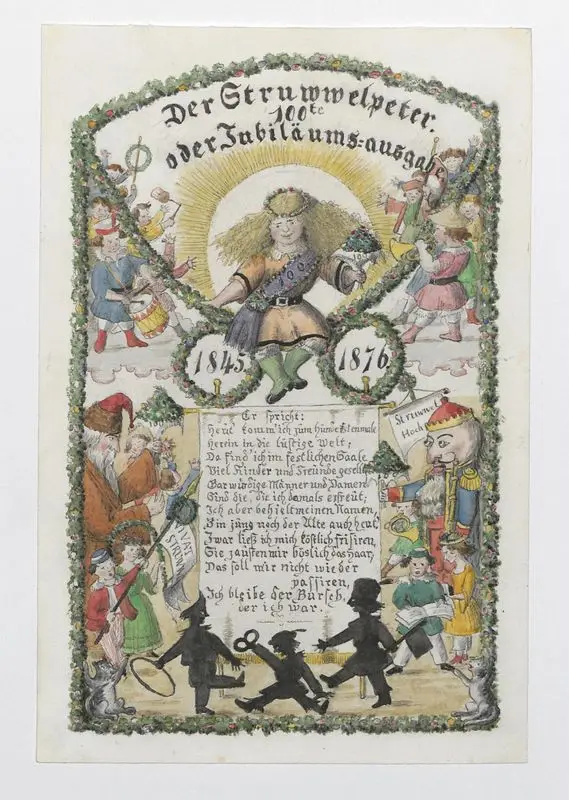 Der Struwwelpeter.
100te
oder Jubiläums=ausgabe
100
1845
1876
Er spricht:
Heut komm' ich zum hundertstenmale
Herein in die lustige Welt;
Da find' ich im festlichen Saale
Viel Kinder und Freunde gesellt
Gar würdige Männer und Damen
Sind die, die ich damals erfreut;
Ich aber behielt meinen Namen,
Bin jung noch der Alte auch heut,
Zwar ließ ich mich köstlich frisiren,
Sie zausten mir böslich das Haar,
Das soll mir nicht wieder
passiren,
Ich bleibe der Bursch,
der ich war.
Struwwel
Hoch
VIVAT
STRUWW